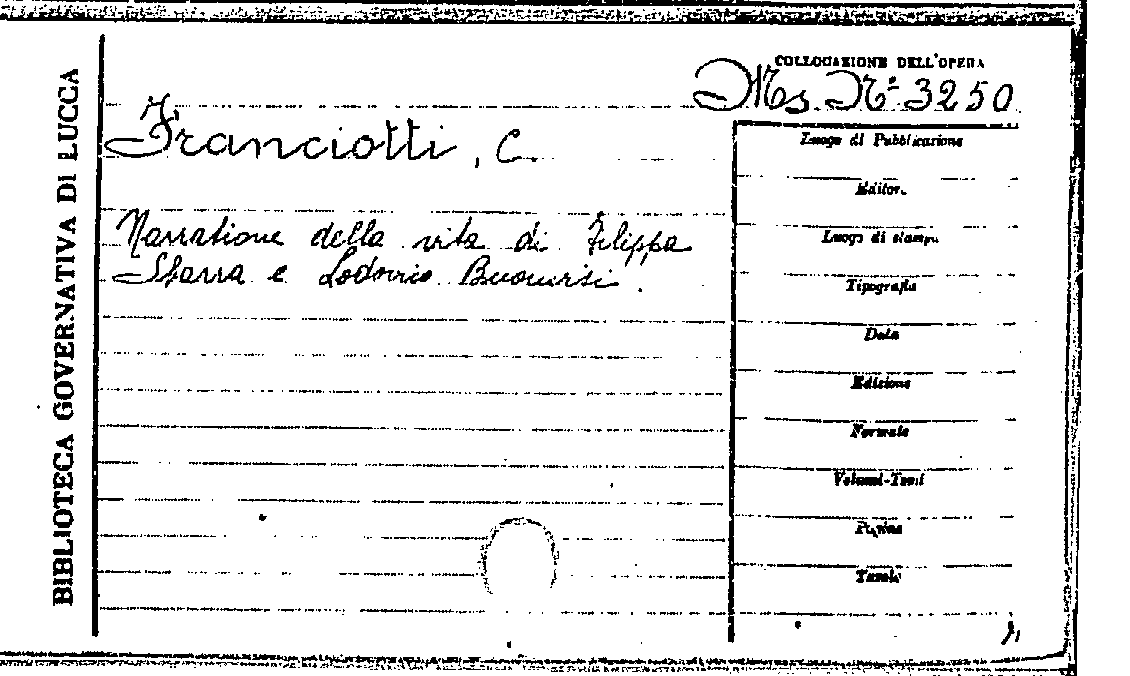 BIBLIOTECA GOVERNATIVA DI LUCCA
COLLOCAZIONE DELL'OPERA
Ms. Nº 3250
Franciotti, C.
Narratione della vita di Filippa
Sbarra e Lodovico Buonvisi.
Luogo di Pubblicazione
Editore
Luogo di stampa
Tipografia
Data
Edizione
Formato
Volumi-Tomi
Pagine
Tavole